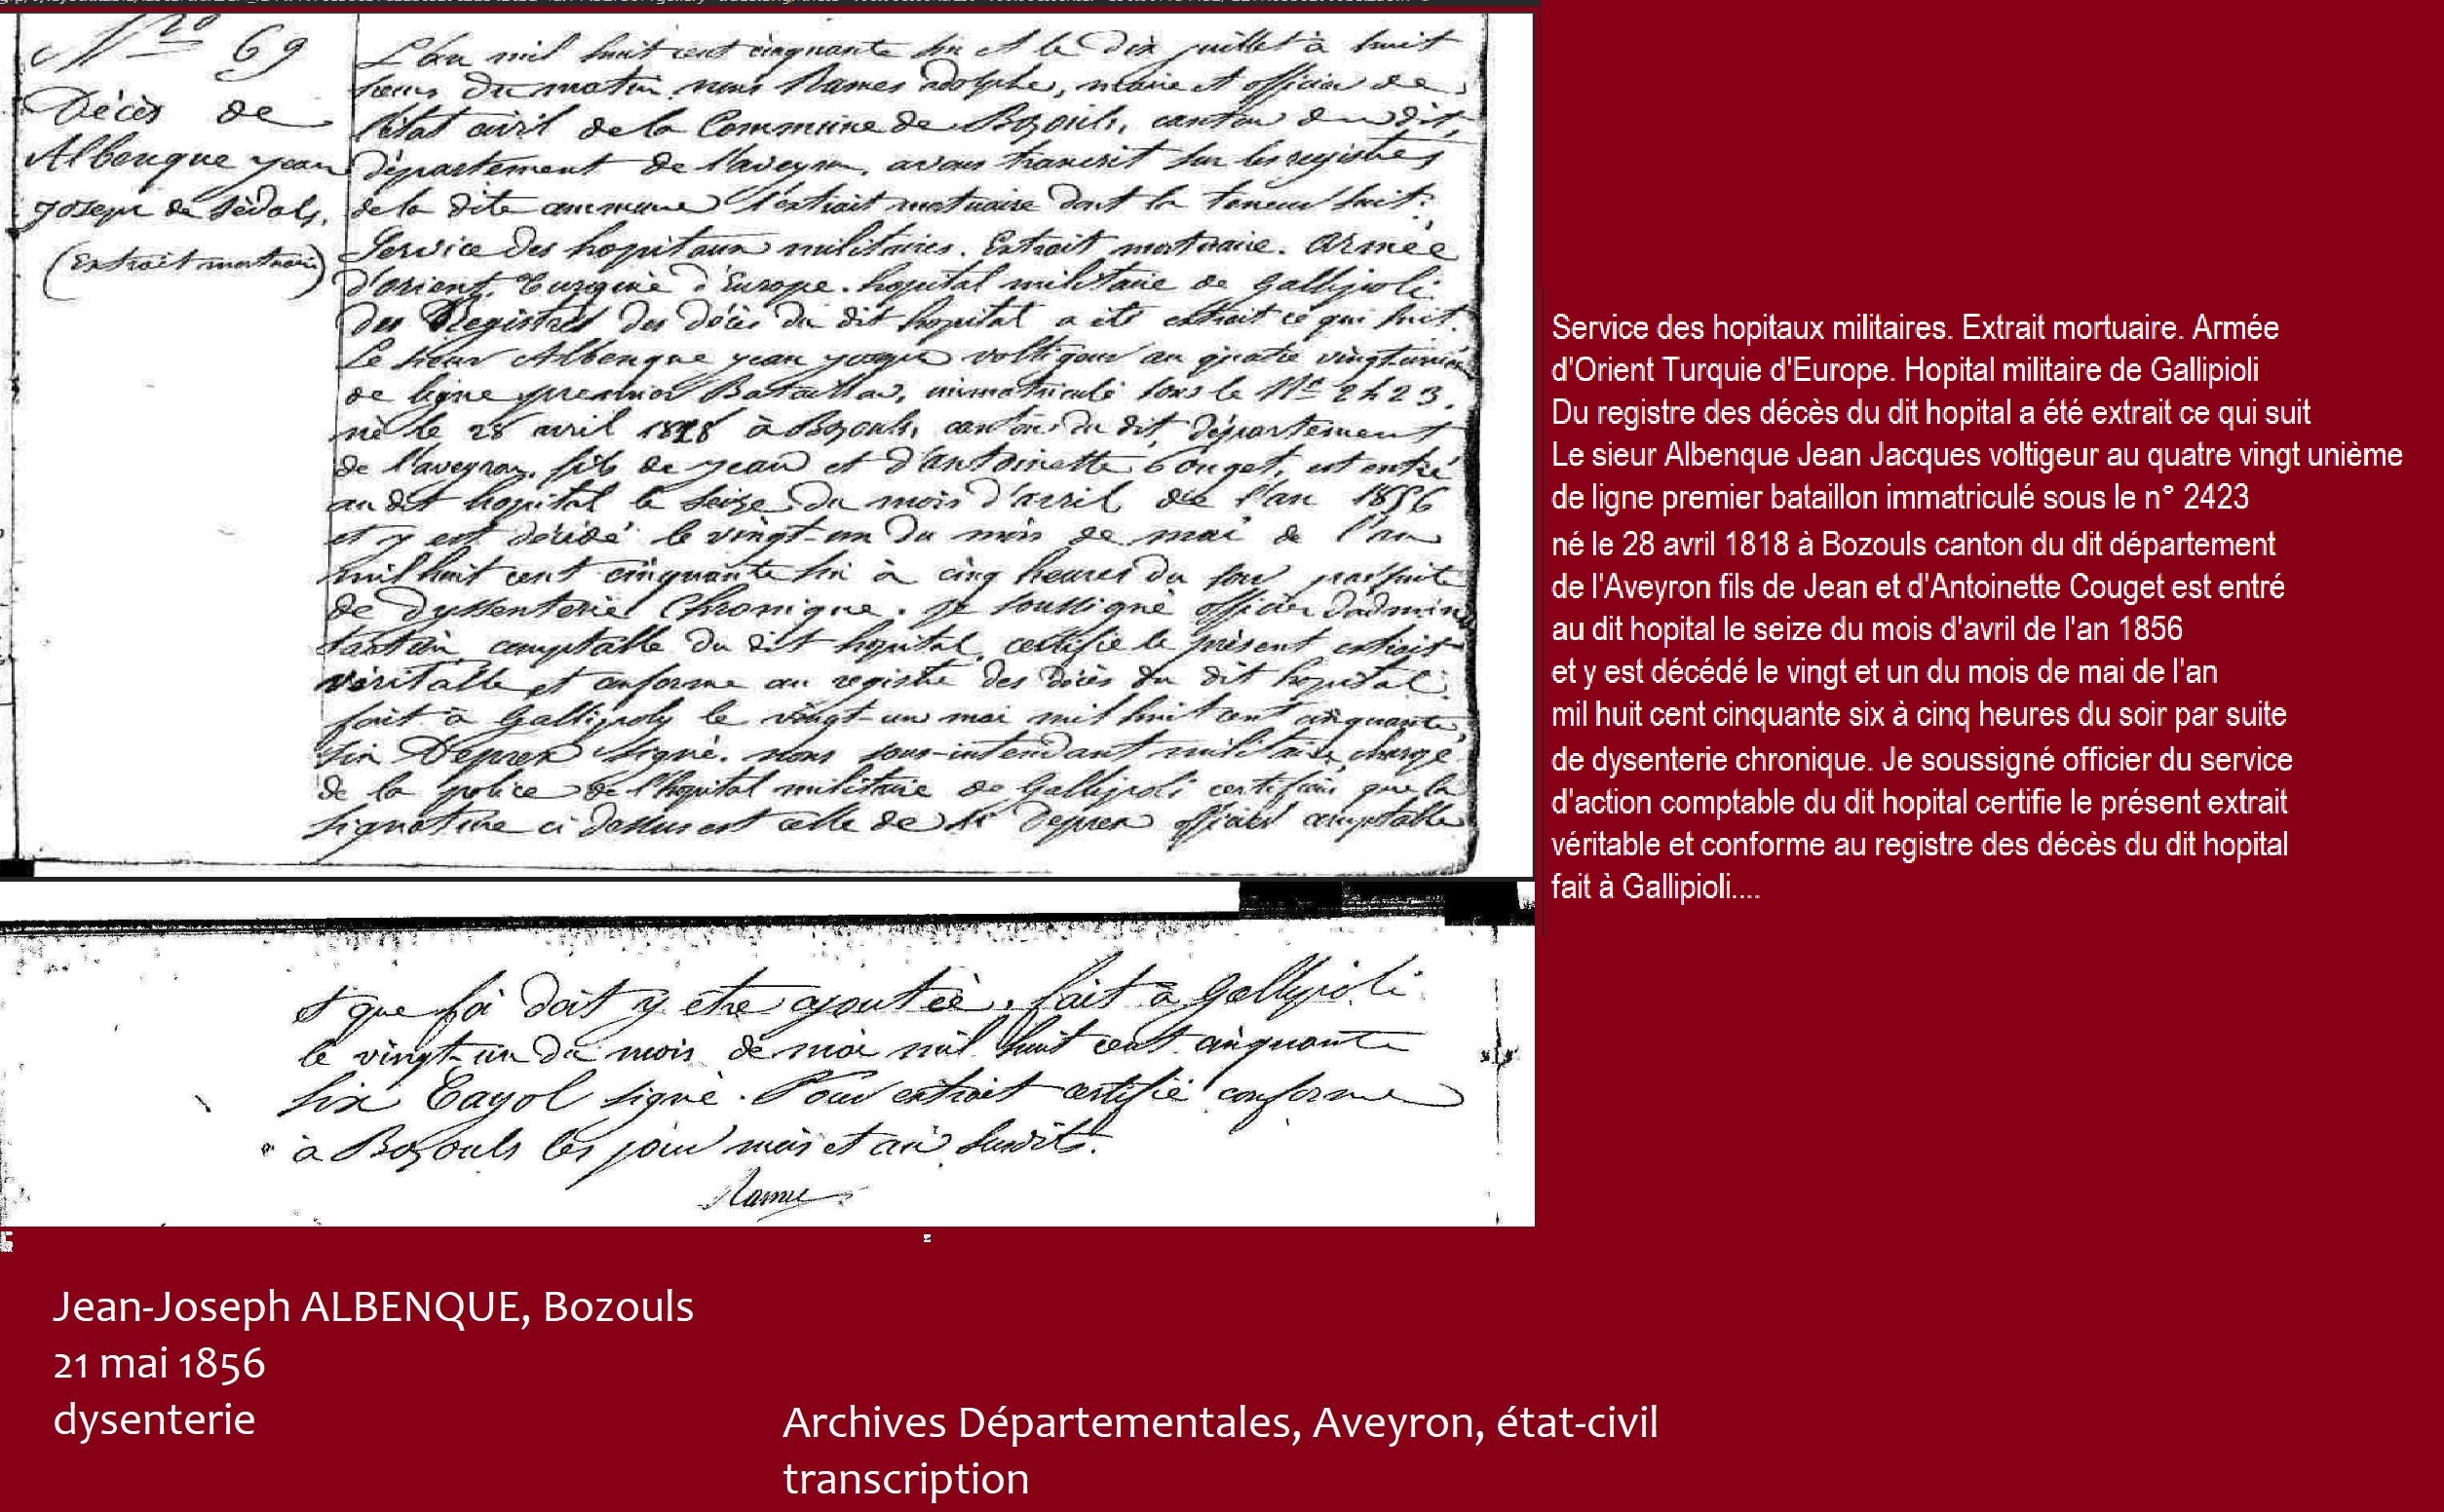 N.ro 69
Décès de
Albenque jean
joseph de Sèdals,
(Extrait mortuaire)
L'an mil huit cent cinquante six et le dix juillet à huit
heures du matin, nous Rames adolphe, maire et officier de
l'état civil de la Commune de Bozouls, canton du dit,
département de l'aveyron, avons transcrit sur les registres
de la dite commune l'extrait mortuaire dont la teneur suit:
Service des hopitaux militaires. Extrait mortuaire. Armée
d'orient, Turquie d'Europe. hopital militaire de Gallipoli
Des Registres des décès du dit hopital a été extrait ce qui suit.
Le sieur Albenque jean voltigeur au quatre vingt unième
de ligne premier Bataillon, immatriculé sous le N.o 2423.
né le 28 avril 1818 à Bozouls, canton du dit, département
de l'aveyron, fils de jean et d'antoinette Couget, est entré
au dit hopital le seize du mois d'avril de l'an 1856
et y est décédé le vingt-un du mois de mai de l'an
mil huit cent cinquante six à cinq heures du soir par suite
de dyssenterie Chronique. Je soussigné officier d'adminis
tration comptable du dit hopital, certifie le présent extrait
véritable et conforme au registre des décès du dit hopital.
fait à Gallipoly le vingt-un mai mil huit cent cinquante
six signé. Nous sous-intendant militaire chargé
de la police de l'hopital militaire de Gallipoli certifions que la
signature ci dessus est celle de Mr officier comptable
et que foi doit y être ajoutée. fait à Gallypoli
le vingt-un du mois de mai mil huit cent cinquante
six Cayol signé. Pour extrait certifié conforme
à Bozouls les jour mois et an susdits.
Rames
Service des hopitaux militaires. Extrait mortuaire. Armée
d'Orient Turquie d'Europe. Hopital militaire de Gallipioli
Du registre des décès du dit hopital a été extrait ce qui suit
Le sieur Albenque Jean Jacques voltigeur au quatre vingt unième
de ligne premier bataillon immatriculé sous le n° 2423
né le 28 avril 1818 à Bozouls canton du dit département
de l'Aveyron fils de Jean et d'Antoinette Couget est entré
au dit hopital le seize du mois d'avril de l'an 1856
et y est décédé le vingt et un du mois de mai de l'an
mil huit cent cinquante six à cinq heures du soir par suite
de dysenterie chronique. Je soussigné officier du service
d'action comptable du dit hopital certifie le présent extrait
véritable et conforme au registre des décès du dit hopital
fait à Gallipioli....
Jean-Joseph ALBENQUE, Bozouls
21 mai 1856
dysenterie
Archives Départementales, Aveyron, état-civil
transcription